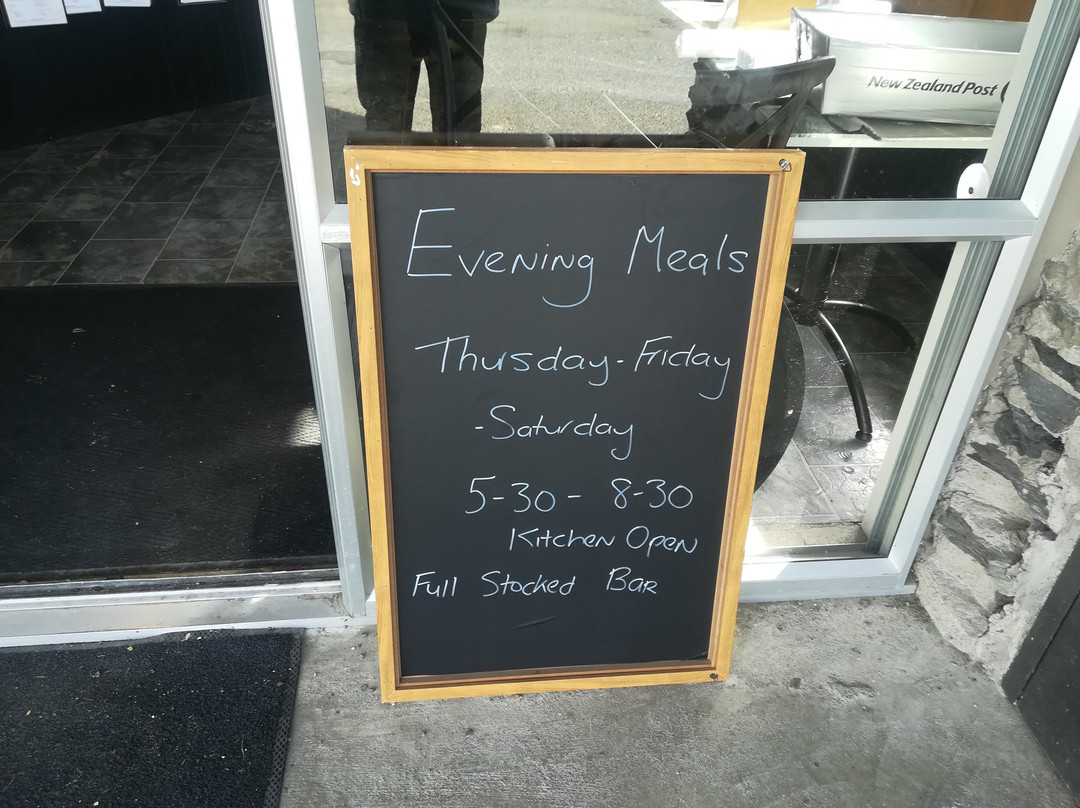 New Zealand Post
Evening Meals
Thursday - Friday
- Saturday
5-30 - 8-30
Kitchen Open
Full Stocked Bar